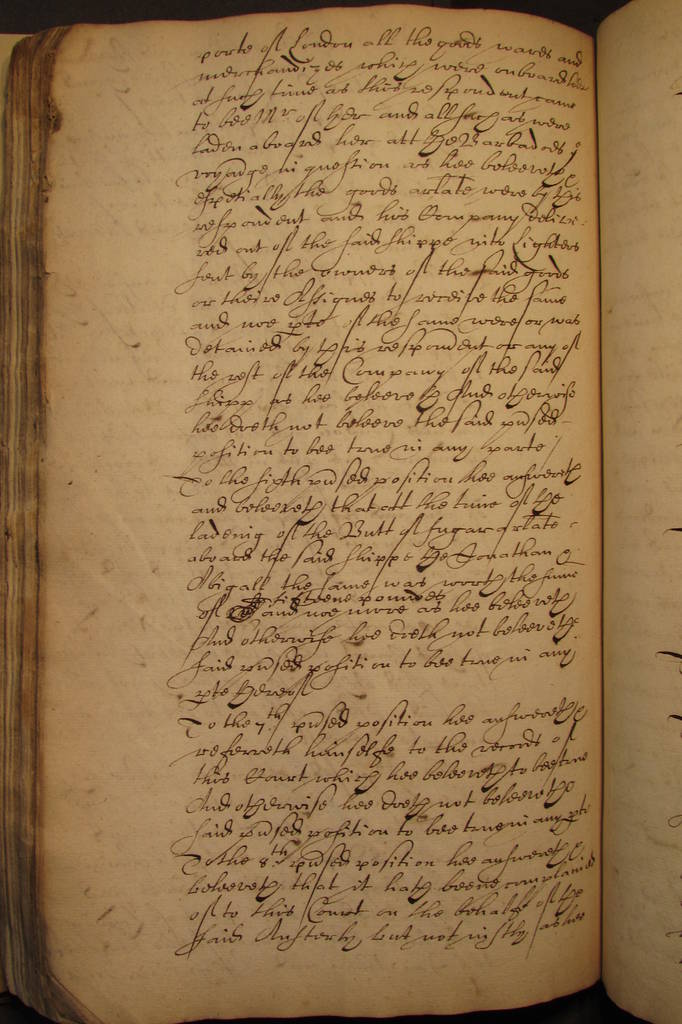 porte of London all the goods wares and
merchandizes which were onboard her
at such tyme as this respondent came
to bee Mr of her and all such as were
laden aboard her att the Barbadoes ye
voyadge in question as hee beleeveth &
espetially the goods arlate were by this
respondent and his Company delive-
red out of the said shippe into Lighters
sent by the owners of the said goods
or theire Assignes to receive the same
and noe pte of the same were or was
detained by this respondent or any of
the rest of the Company of the said
shipp as hee beleeveth And otherwise
hee doth not beleeve the said pñsed
position to bee true in any parte
To the sixth pñsed position hee answereth
and beleeveth that att the tyme of the
ladeing of the Butt of sugar arlate
aboard the said shippe the Jonathan &
Abigall the same was worth the summe
of fifteene poundes and noe more as hee beleeveth
And otherwise hee doth not beleeve the
said pñsed position to bee true in any
pte thereof
To the 7th pñsed position hee answereth &
referreth himselfe to the records of
this Court which hee beleeveth to bee true
And otherwise hee doth not beleeve the
said pñsed position to bee true in any pte
To the 8th pñsed position hee answereth &
beleeveth that it hath beene complained
of to this Court on the behalfe of the
said Austerby but not justly as hee